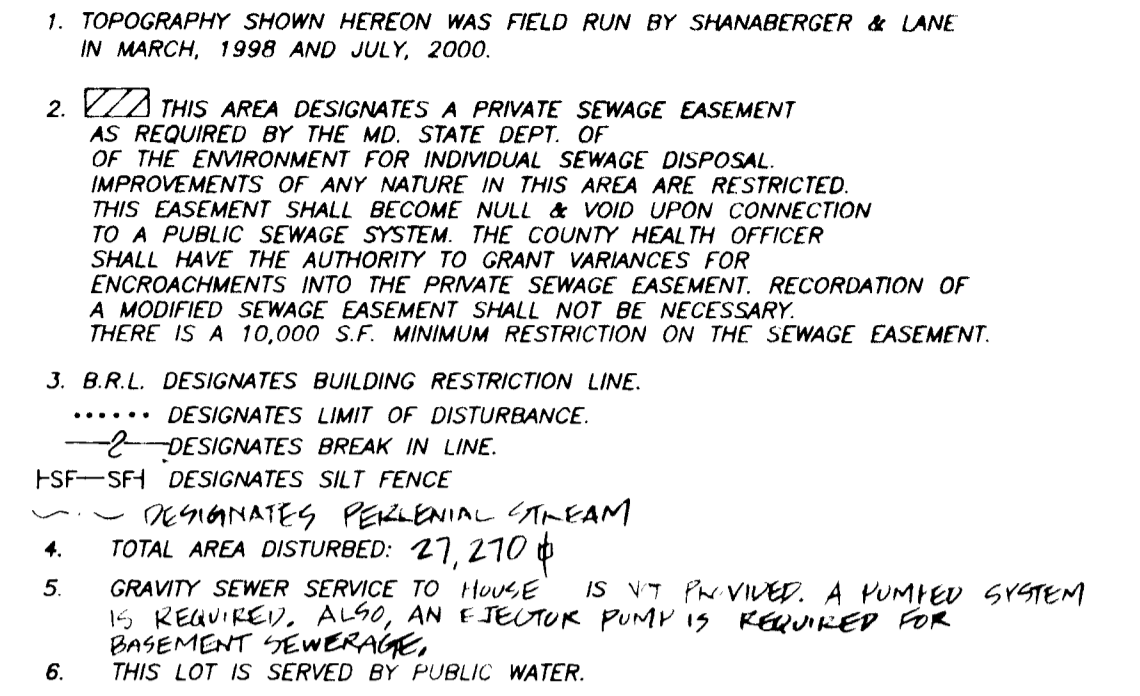 1. TOPOGRAPHY SHOWN HEREON WAS FIELD RUN BY SHANABERGER & LANE
IN MARCH, 1998 AND JULY, 2000.
2. THIS AREA DESIGNATES A PRIVATE SEWAGE EASEMENT
AS REQUIRED BY THE MD. STATE DEPT. OF
OF THE ENVIRONMENT FOR INDIVIDUAL SEWAGE DISPOSAL.
IMPROVEMENTS OF ANY NATURE IN THIS AREA ARE RESTRICTED.
THIS EASEMENT SHALL BECOME NULL & VOID UPON CONNECTION
TO A PUBLIC SEWAGE SYSTEM. THE COUNTY HEALTH OFFICER
SHALL HAVE THE AUTHORITY TO GRANT VARIANCES FOR
ENCROACHMENTS INTO THE PRIVATE SEWAGE EASEMENT. RECORDATION OF
A MODIFIED SEWAGE EASEMENT SHALL NOT BE NECESSARY.
THERE IS A 10,000 S.F. MINIMUM RESTRICTION ON THE SEWAGE EASEMENT.
3. B.R.L. DESIGNATES BUILDING RESTRICTION LINE.
...... DESIGNATES LIMIT OF DISTURBANCE.
DESIGNATES BREAK IN LINE.
SF—SF DESIGNATES SILT FENCE
DESIGNATES PERLENIAL STREAM
4. TOTAL AREA DISTURBED: 27,270
5. GRAVITY SEWER SERVICE TO HOUSE IS NOT PROVIDED. A PUMPED SYSTEM
IS REQUIRED. ALSO, AN EJECTOR PUMP IS REQUIRED FOR
BASEMENT SEWERAGE.
6. THIS LOT IS SERVED BY PUBLIC WATER.